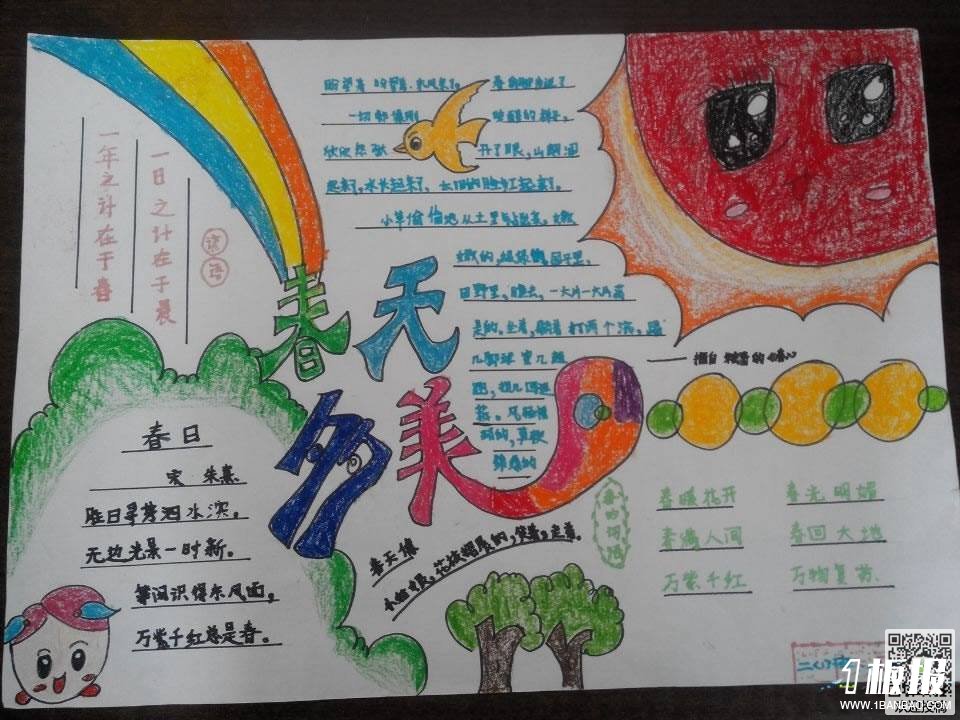 一年之计在于春
一日之计在于晨
谚语
春天多美
盼望着 盼望着,东风来了。 春天的脚步近了
一切都像刚 睡醒的样子。
欣欣然张 开了眼,山朗润
起来了,水长起来了、太阳的脸红起来了。
小草偷偷地从土里钻出来,嫩
嫩的,绿绿的,园子里,
田野里,瞧去,一大片一大片满
是的。坐着,躺着 打两个滚,踢
几脚球 赛几趟
跑,捉几回迷
藏。风轻悄
悄的,草软
绵绵的
摘自 的《春》
春日
宋 朱熹
胜日寻芳泗水滨。
无边光景一时新。
等闲识得东风面,
万紫千红总是春。
春天像
小姑娘,花枝招展的,笑着,走着。
春的词语
春暖花开 春光明媚
春满人间 春回大地
万紫千红 万物复苏
1板报
WWW.1BANBAO.COM